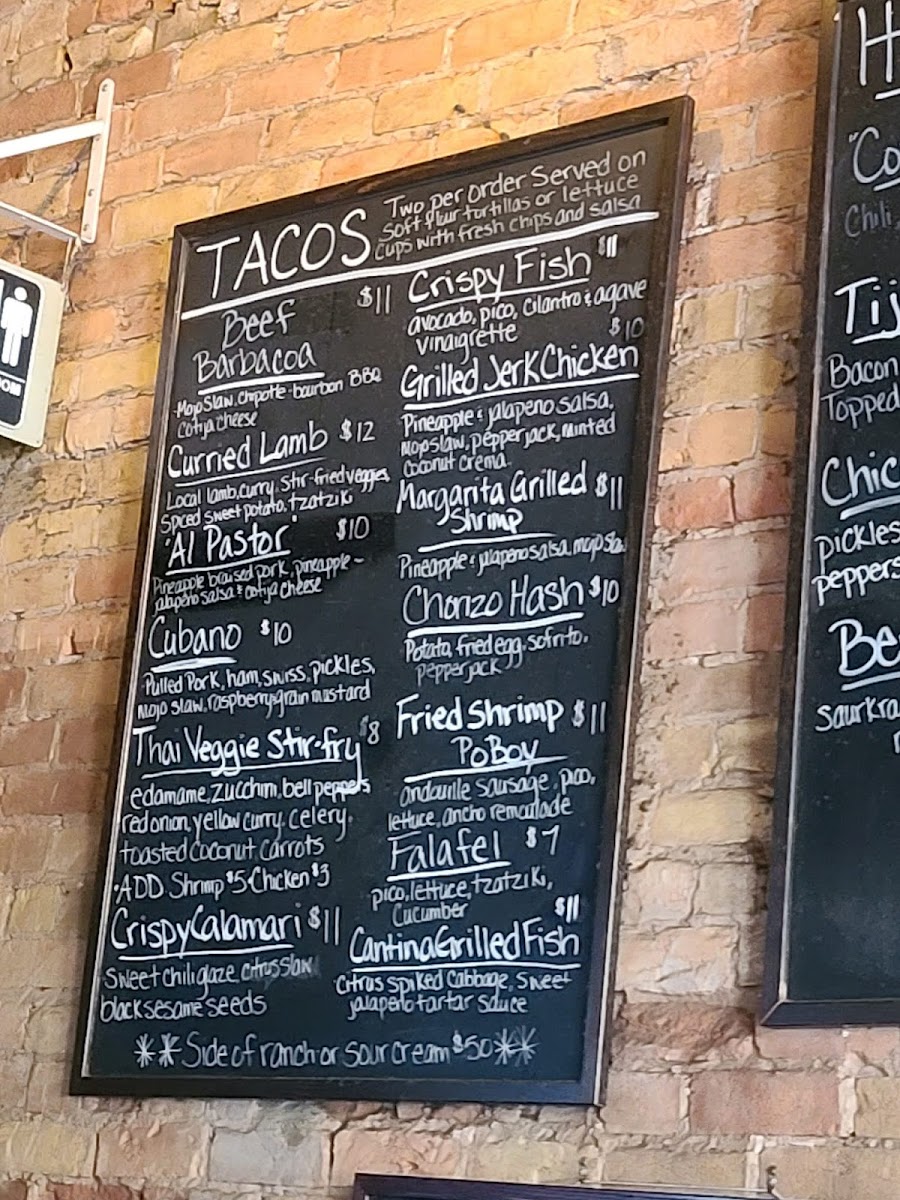 TACOS
Two per order Served on
soft flour tortillas or lettuce
cups with fresh chips and salsa
Beef $11
Barbacoa
Mojo Slaw, Chipotle-bourbon BBQ
Cotija cheese
Curried Lamb $12
Local lamb, curry, stir-fried veggies,
Spiced sweet potato, tzatziki
"Al Pastor" $10
Pineapple braised pork, pineapple-
jalapeño salsa & cotija cheese
Cubano $10
Pulled Pork, ham, swiss, pickles,
mojo slaw, raspberry grain mustard
Thai Veggie Stir-fry $8
edamame, zucchini, bell peppers
red onion, yellow curry, celery,
toasted coconut carrots
ADD Shrimp $5 Chicken $3
Crispy Calamari $11
Sweet chili glaze, citrus slaw
black sesame seeds
Crispy Fish $11
avocado, pico, cilantro & agave
vinaigrette
$10
Grilled Jerk Chicken
Pineapple & jalapeno salsa,
Mojo slaw, pepper jack, minted
Coconut crema
Margarita Grilled $11
Shrimp
Pineapple & jalapeno salsa, mojo slaw
Chorizo Hash $10
Potato, fried egg, sofrito,
pepper jack
Fried Shrimp $11
PoBoy
andouille sausage, pico,
lettuce, ancho remoulade
Falafel $7
pico, lettuce, tzatziki,
Cucumber
$11
Cantina Grilled Fish
Citrus spiked Cabbage, Sweet
jalapeno tartar sauce
** Side of ranch or sour cream $.50 **
H
"Co
Chili,
Tij
Bacon
Topped
Chic
pickles
peppers
Be
Saurkra
OOM